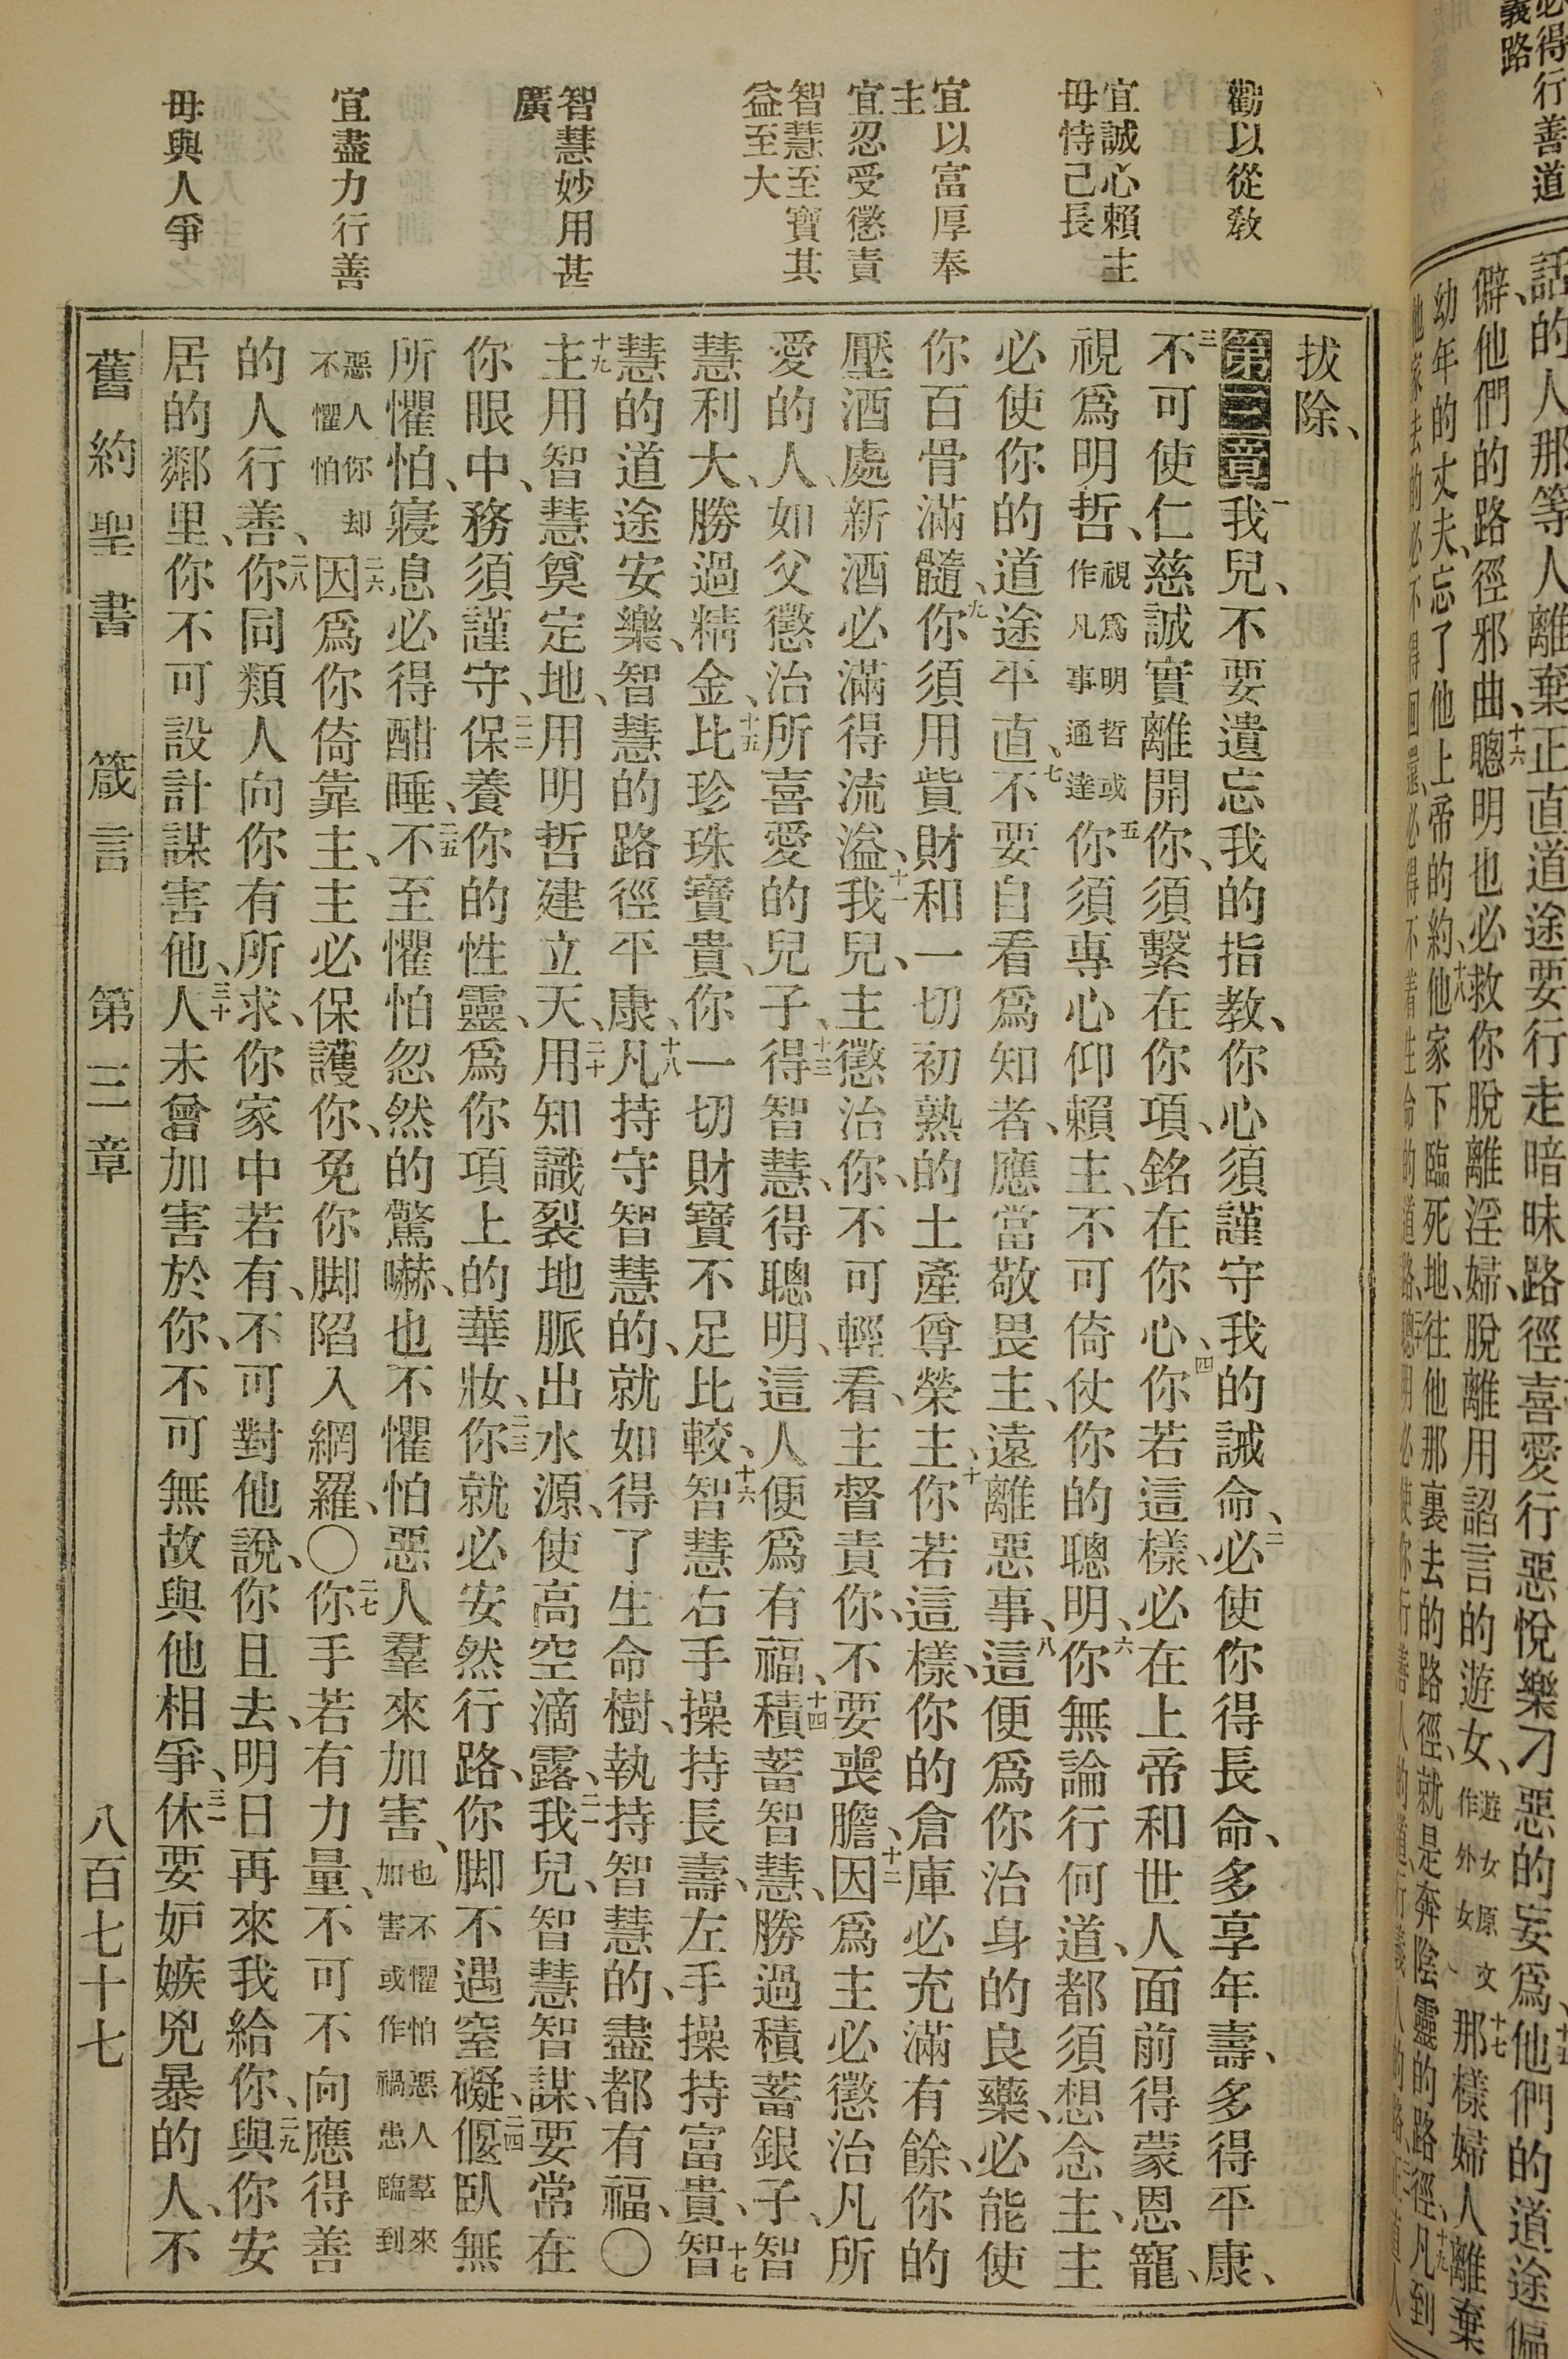 必得行善道
義路
話的人那等人離棄、正直道途要行走暗昧路徑喜愛行惡悅樂刁惡的妄爲、十五他們的道途偏
僻、他們的路徑邪曲、十六聰明也必救你脫離淫婦、脫離用諂言的遊女、遊女原文作外女十七那樣婦人離棄
幼年的丈夫、忘了他上帝的約、十八他家下臨死地、往他那裏去的路徑、就是奔陰靈的路徑、十九凡到
他家去的必不得回還、必得不着生命的道路、聰明必使你行善人的道、行義人的路、
勸以從敎
宜誠心賴主
毋恃己長
宜以富厚奉
主
宜忍受懲責
智慧至寶其
益至大
智慧妙用甚
廣
宜盡力行善
毋與人爭
拔除、
第三章一我兒、不要遺忘我的指教、你心須謹守我的誡命、二必使你得長命、多享年壽、多得平康、
三不可使仁慈誠實離開你、須繫在你項、銘在你心、四你若這樣、必在上帝和世人面前得蒙恩寵、
視爲明哲、視爲明哲或作凡事通達五你須專心仰賴主、不可倚仗你的聰明、六你無論行何道、都須想念主、主
必使你的道途平直、七不要自看爲知者、應當敬畏主、遠離惡事、八這便爲你治身的良藥、必能使
你百骨滿髓、九你須用貲財和一切初熟的土產尊榮主、十你若這樣、你的倉庫必充滿有餘、你的
壓酒處新酒必滿得流溢、十一我兒、主懲治你、不可輕看、主督責你、不要喪膽、十二因爲主必懲治凡所
愛的人、如父懲治所喜愛的兒子、十三得智慧、得聰明、這人便爲有福、十四積蓄智慧、勝過積蓄銀子、智
慧利大、勝過精金、十五比珍珠寶貴、你一切財寶不足比較、十六智慧右手操持長壽、左手操持富貴、十七智
慧的道途安樂、智慧的路徑平康、十八凡持守智慧的、就如得了生命樹、執持智慧的、盡都有福、○
十九主用智慧奠定地、用明哲建立天、二十用知識裂地脈出水源、使高空滴露、二一我兒、智慧智謀、要常在
你眼中、務須謹守、二二保養你的性靈、爲你項上的華妝、二三你就必安然行路、你脚不遇窒礙、二四偃臥無
所懼怕、寢息必得酣睡、二五不至懼怕忽然的驚嚇、也不懼怕惡人羣來加害、也不懼怕惡人羣來加害或作禍患臨到
惡人你却不懼怕二六因爲你倚靠主、主必保護你、免你脚陷入網羅、○二七你手若有力量、不可不向應得善
的人行善、二八你同類人向你有所求、你家中若有、不可對他說、你且去、明日再來我給你、二九與你安
居的鄰里、你不可設計謀害他、三十人未曾加害於你、不可無故與他相爭、三一休要妒嫉兇暴的人、不
舊約聖書　箴言　第三章　八百七十七